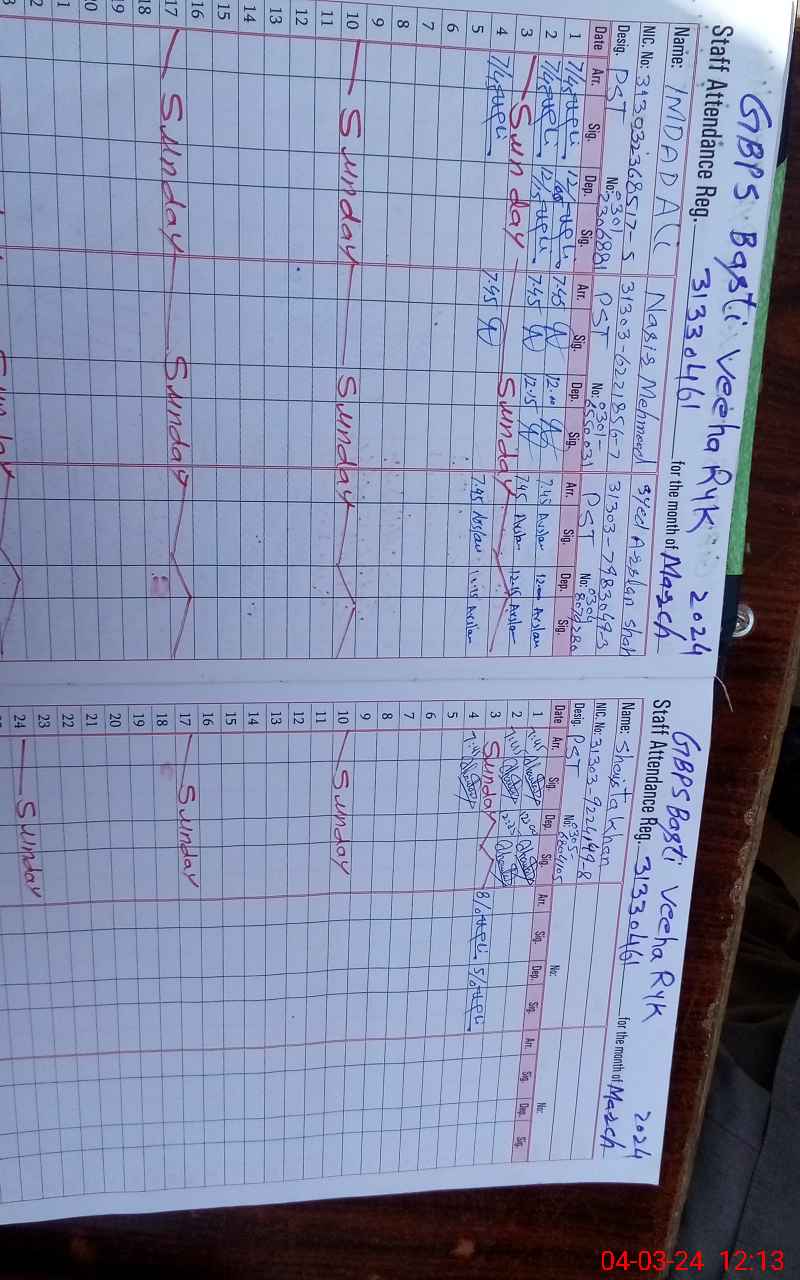 GBPS Basti Veeha RYK 2024
Staff Attendance Reg. 31330461 for the month of March
Name: IMDAD ALi Nasir Mehmood Syed Arslan Shah
NIC. No: 313032368517-5 31303-6221856-7 31303-7983049-3
Desig. PST No: 0301 2306881 PST No: 0301- 8550031 PST No: 0304
Date Arr. Sig. Dep. Sig. Arr. Sig. Dep. Sig. Arr. Sig. Dep. Sig.
1 7/45 12/00 7.45 12.00 7.45 Arslan 12.00 Arslan
2 7/45 12/15 7.45 12.15 7.45 Arslan 12.15 Arslan
3 Sunday Sunday
4 7/45 7.45 7.45 Arslan 12.15 Arslan
5
6
7
8
9
10 Sunday Sunday
11
12
13
14
15
16
17 Sunday Sunday
18
19
20
GBPS Basti Veeha RYK 2024
Staff Attendance Reg. 31330461 for the month of March
Name: Shaysta Khan
NIC. No: 31303-9224149-8
Desig. PST No: 0305- 6804105 No: No:
Date Arr. Sig. Dep. Sig. Arr. Sig. Dep. Sig. Arr. Sig. Dep. Sig.
1 7:45 12:00
2 7:45
3 Sunday
4 7:45 8/0 5/0
5
6
7
8
9
10 Sunday
11
12
13
14
15
16
17 Sunday
18
19
20
21
22
23
24 Sunday
04-03-24 12:13